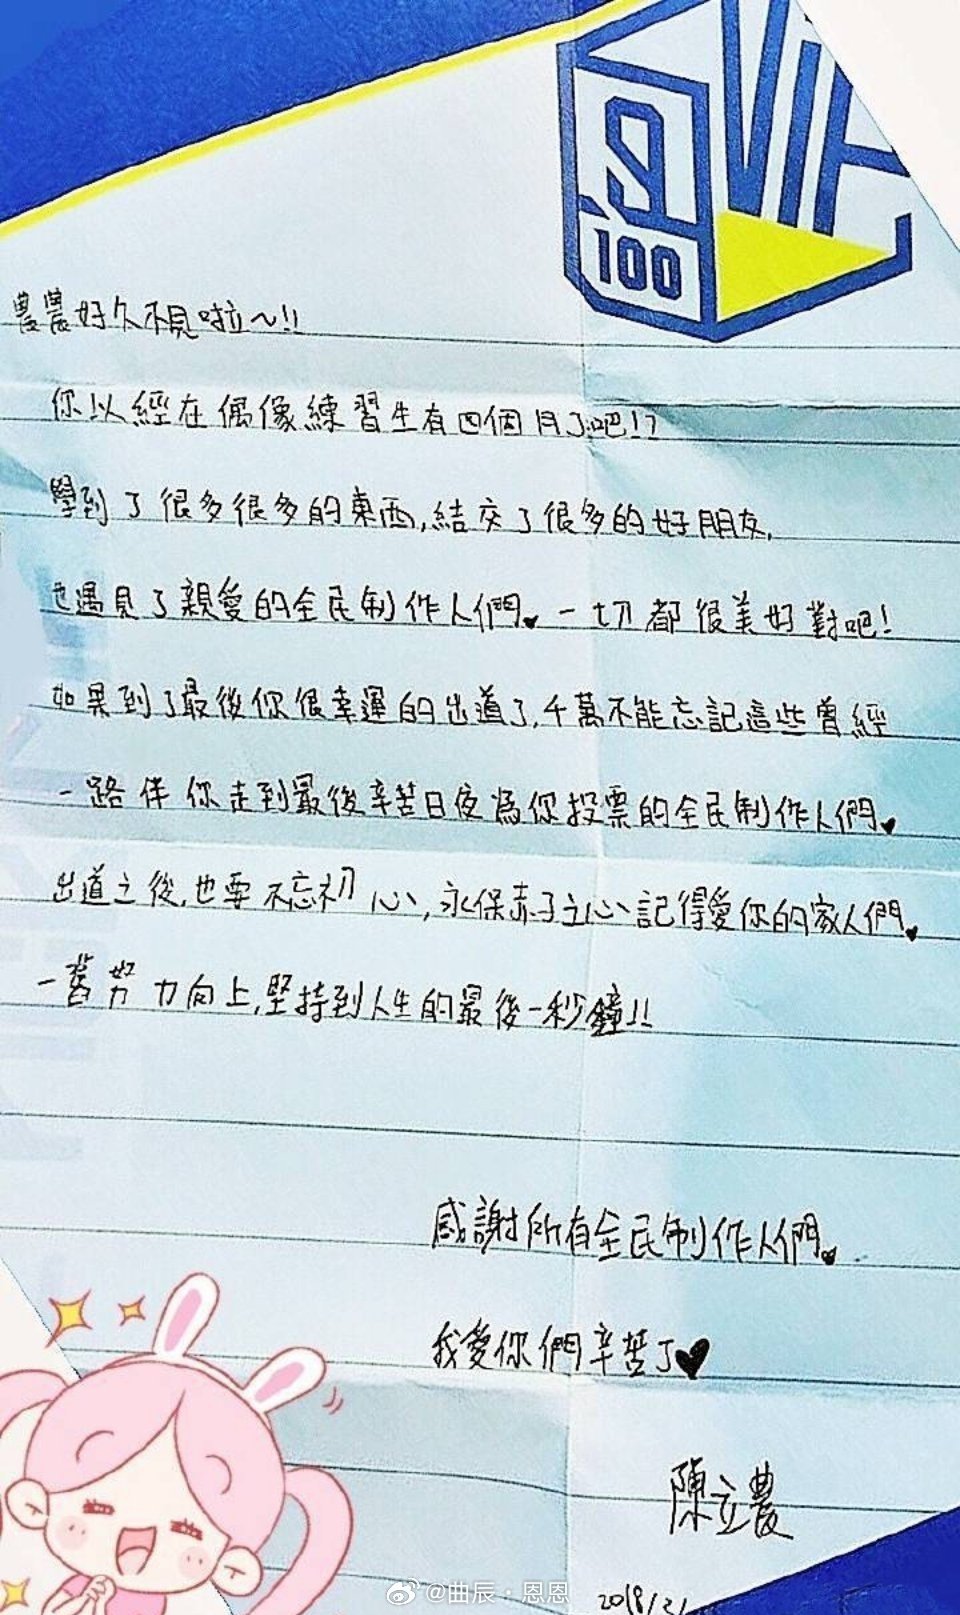 100
農農好久不見啦～!!
你以經在偶像練習生有四個月了吧!?
學到了很多很多的東西,結交了很多的好朋友,
也遇見了親愛的全民制作人們♥一切都很美好對吧!
如果到了最後你很幸運的出道了,千萬不能忘記這些曾經
一路伴你走到最後辛苦日夜為你投票的全民制作人們♥
出道之後,也要不忘初心,永保赤子之心記得愛你的家人們♥
一舊努力向上,堅持到人生的最後一秒鐘!!
感謝所有全民制作人們♥
我愛你們辛苦了♥
陳立農
2018/2/
@曲辰·恩恩